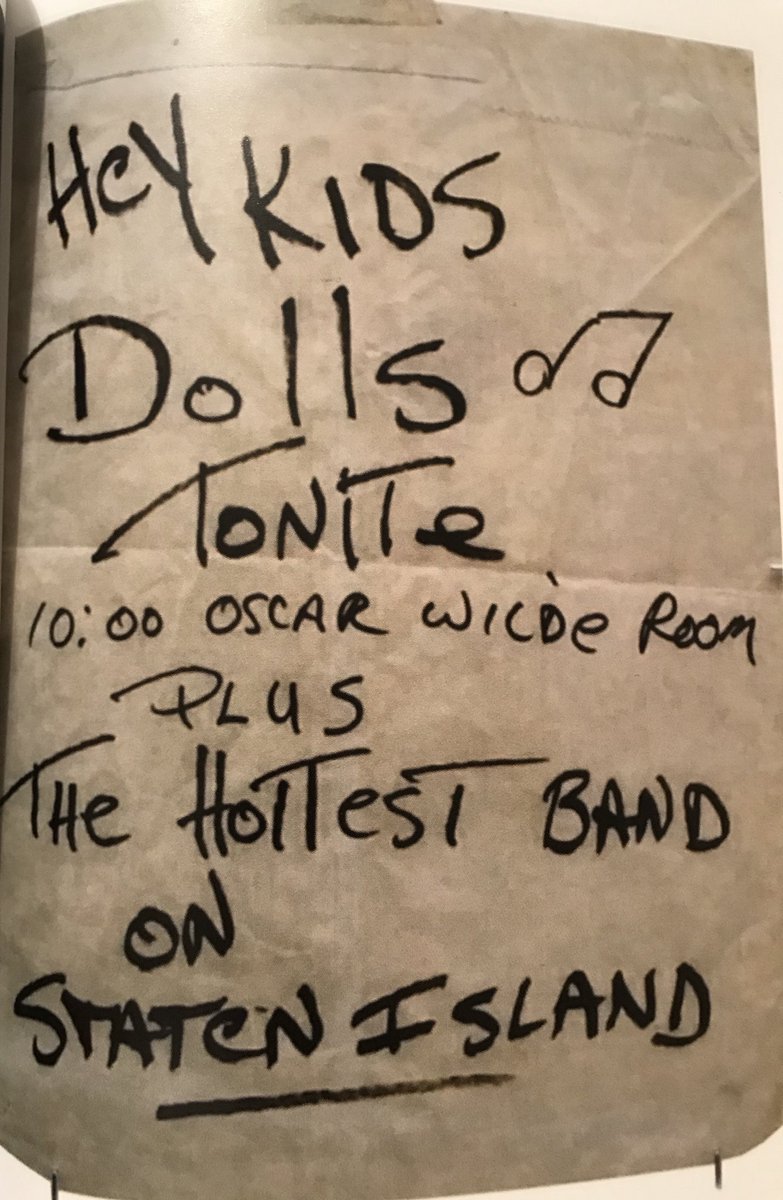 HeY KIDS
Dolls
TONITe
10:00 OSCAR WILDe ROOM
PLUS
THe HOTTesT BAND
ON
STATeN ISLAND